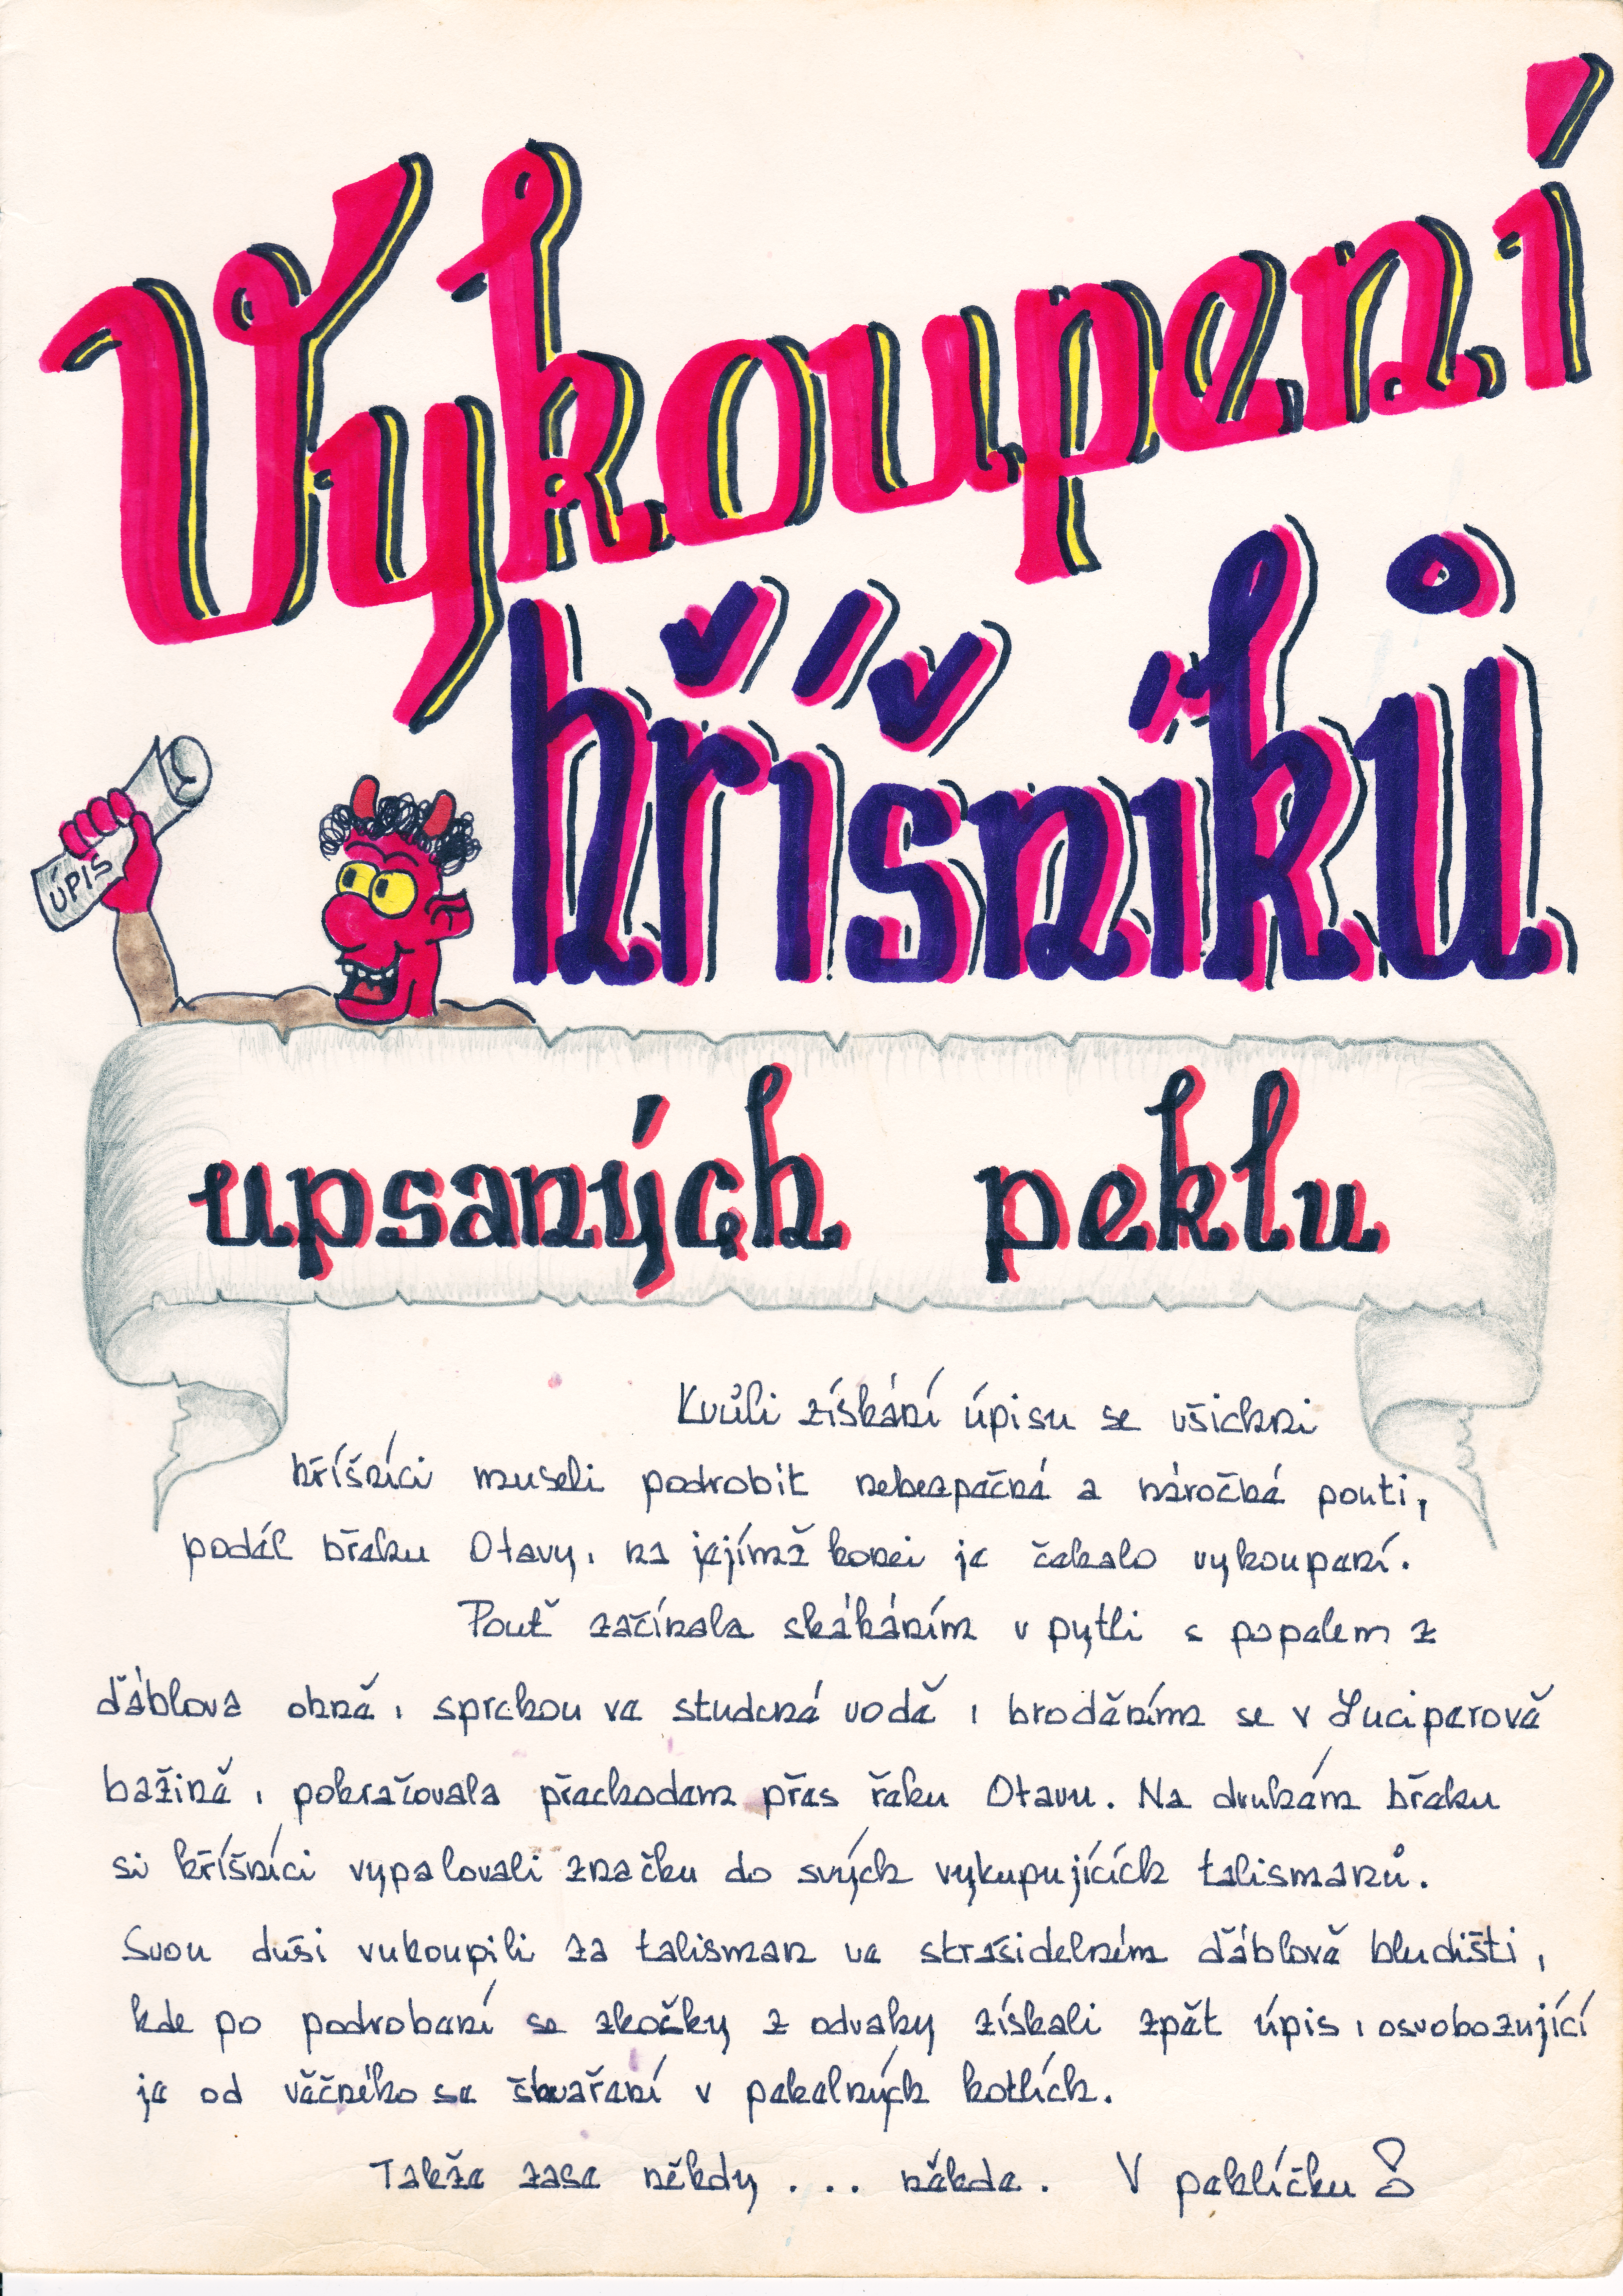 Vykoupení
hříšníků
ÚPIS
upsaných peklu
Kvůli získání úpisu se všichni
hříšníci museli podrobit nebezpečné a náročné pouti,
podél břehu Otavy, na jejímž konci je čekalo vykoupení.
Pouť začínala skákáním v pytli s popelem z
ďáblova ohně, sprchou ve studené vodě, broděním se v Luciperově
bažině, pokračovala přechodem přes řeku Otavu. Na druhém břehu
si hříšníci vypalovali značku do svých vykupujících talismanů.
Svou duši vykoupili za talisman ve strašidelném ďáblově bludišti,
kde po podrobení se zkoušky z odvahy získali zpět úpis, osvobozující
je od věčného se škvaření v pekelných kotlích.
Takže zase někdy ... někde. V peklíčku!